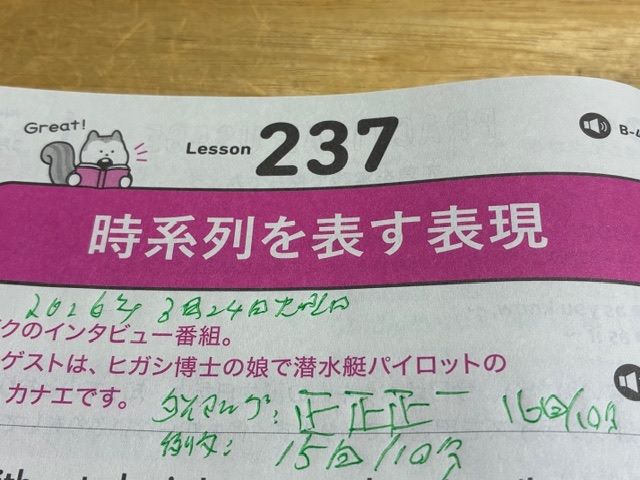 Great!
Lesson 237
B-
時系列を表す表現
2026年 3月24日火曜日
クのインタビュー番組。
ゲストは、ヒガシ博士の娘で潜水艇パイロットの
カナエです。
タイマング: 正正正一 16回/10分
15回/10分